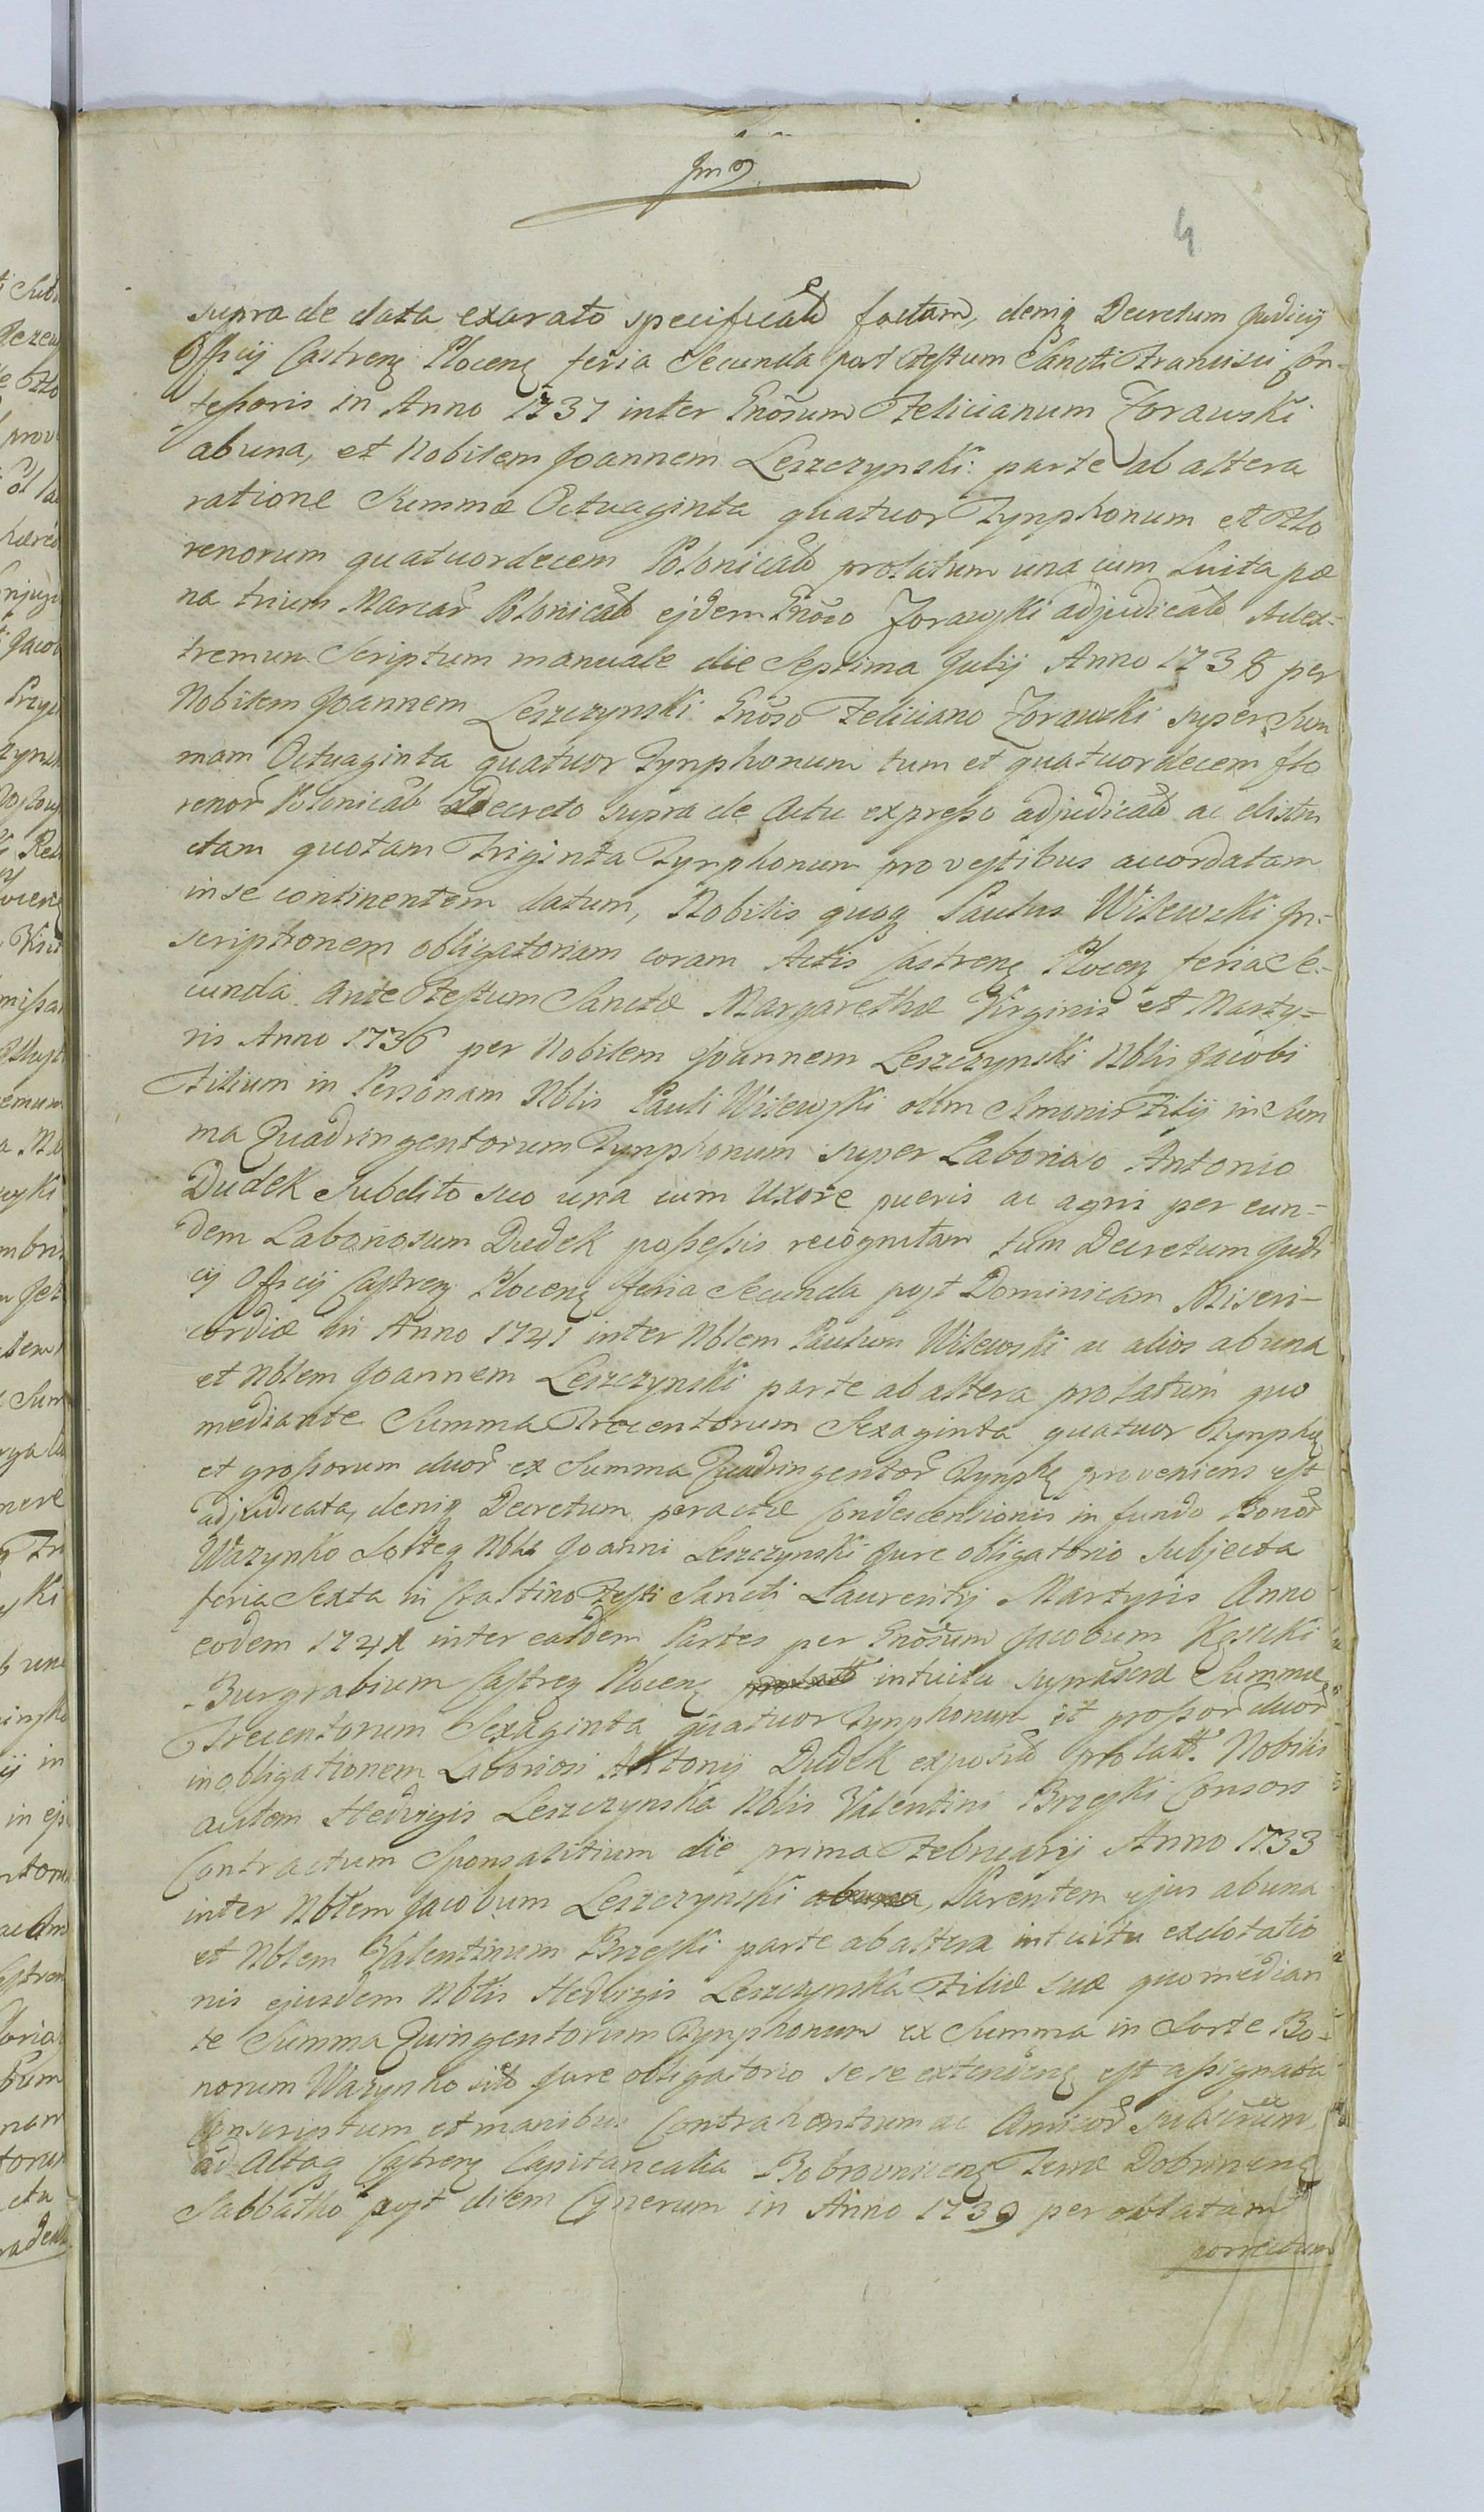 4
supra de data exarato specificato factam, deniq Decretum Judicij
Officij Castrens Plocens feria Secunda post Festum Sancti Francisci Con-
fessoris in Anno 1737 inter Gnosum Felicianum Zorawski
ab una, et Nobilem Joannem Leszczynski parte ab altera
ratione Summæ Octuaginta quatuor Tynphonum et Flo
renorum quatuordecem Polonicalb prolatum una cum Luita pæ
na trium Marcar Polonicalb ejdem Gnoso Zorawski adjudicalb Adex-
tremum Scriptum manuale die Septima Julij Anno 1738 per
Nobilem Joannem Leszczynski Gnoso Feliciano Zorawski super Sum
mam Octuaginta quatuor Tynphonum tum et quatuordecem flo
renor Polonicalb Decreto supra de Actu expresso adjudicalb ac distin
ctam quotam Triginta Tynphonum pro vestibus accordatam
in se continentem datum, Nobilis quoq Paulus Wilewski In-
scriptionem obligatoriam coram Actis Castrens Plocens feria Se-
cunda ante Festum Sanctæ Margarethæ Virginis et Marty-
ris Anno 1736 per Nobilem Joannem Leszczynski Nblis Jacobi
Filium in Personam Nblis Pauli Wilewski olim Simonis Filij in Sum
ma Quadringentorum Tynphonum super Laborioso Antonio
Dudek Subdito suo una cum Uxore pueris ac agris per eun-
dem Laboriosum Dudek possessis recognitam tum Decretum Judi
cij Officij Castrens Plocens feria Secunda post Dominicam Miseri-
cordiæ in Anno 1741 inter Nblem Paulum Wilewski ac alios ab una
et Nblem Joannem Leszczynski parte ab altera prolatum quo
mediante Summa Trecentorum Sexaginta quatuor Tynpho
et grossorum duor ex Summa Quadringentor Tynpho proveniens est
adjudicata, deniq Decretum peractæ Condescensionis in fundo Bonor
Wazynko Sorteq Nbli Joanni Leszczynski Jure obligatorio subjecta
feria Sexta in Crastino Festi Sancti Laurentij Martyris Anno
eodem 1741 inter easdem Partes per Gnosum Jacobum
Burgrabium Castrens Plocens intuitu suprascræ Summæ
Trecentorum Sexaginta quatuor Tynphonum et grossor duor
in obligationem Laboriosi Antonij Dudek exposito prolatt. Nobilis
autem Hedvigis Leszczynska Nblis Valentini Brzeski Consors
Contractum Sponsalitium die prima Februarij Anno 1733
inter Nblem Jacobum Leszczynski ab una, Parentem ejus ab una
et Nblem Valentinum Brzeski parte ab altera intuitu exdotatio
nis ejusdem Nblis Hedvigis Leszczynska Filiæ suæ quo median
te Summa Quingentorum Tynphonum ex Summa in Sorte Bo-
norum Wazynko Jure obligatorio se se extendens est assignata
Conscriptum et manibus Contrahentium ac Amicor
ad Actaq Castrens Capitanealia Bobrovnicens Terræ Dobrinens
Sabbatho post diem Cynerum in Anno 1739 per oblatam
porrectum